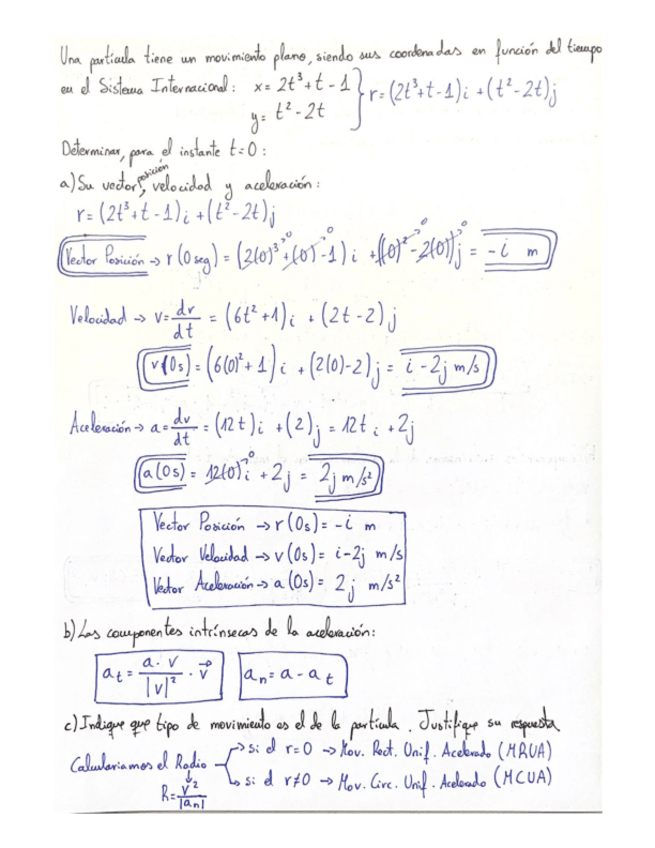 Una partícula tiene un movimiento plano, siendo sus coordenadas en función del tiempo
en el Sistema Internacional: x = 2t³+t-1 } r=(2t³+t-1)i +(t²-2t)j
y= t²-2t
Determinar, para el instante t=0:
a) Su vector posición, velocidad y aceleración:
r=(2t³+t-1)i +(t²-2t)j
Vector Posición → r(0seg) = (2(0)³+(0)-1)i +((0)²-2(0))j = -i m
Velocidad → v= dr/dt = (6t²+1)i + (2t-2)j
v(0s) = (6(0)²+1)i +(2(0)-2)j = i-2j m/s
Aceleración → a= dv/dt = (12t)i +(2)j = 12t i +2j
a(0s) = 12(0)i +2j = 2j m/s²
Vector Posición → r(0s) = -i m
Vector Velocidad → v(0s) = i-2j m/s
Vector Aceleración → a(0s) = 2j m/s²
b) Las componentes intrínsecas de la aceleración:
at = a·v/|v|² · v⃗ an = a - at
c) Indique que tipo de movimiento es el de la partícula. Justifique su respuesta
Calculariamos el Radio → si el r=0 → Mov. Rect. Unif. Acelerado (MRUA)
R= v²/|an| → si el r≠0 → Mov. Circ. Unif. Acelerado (MCUA)